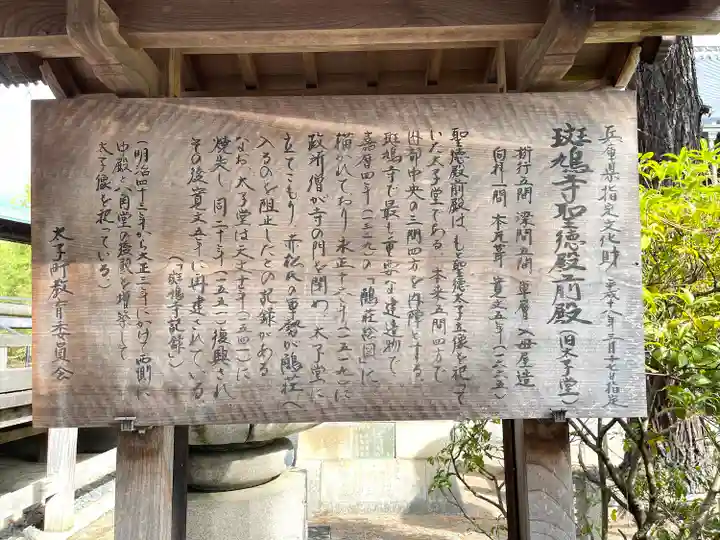 兵庫県指定文化財 平成八年三月十七日指定
斑鳩寺聖徳殿前殿（旧太子堂）
桁行五間 梁間五間 単層 入母屋造
向拝一間 本瓦葺 寛文五年（一六六五）
聖徳殿前殿は、もと聖徳太子立像を祀って
いた太子堂である。本来五間四方で
内部中央の三間四方を内陣とする。
斑鳩寺で最も重要な建造物で
嘉暦四年（一三二九）の「鵤荘絵図」に
描かれており、永正十六年（一五一九）に
政所僧が寺の門を閉め、太子堂に
立てこもり、赤松氏の軍勢が鵤荘へ
入るのを阻止したとの記録がある
なお、太子堂は天文十年（一五四一）に
焼失し、同二十年（一五五一）復興され
その後寛文五年に再建されている
（斑鳩寺記録）
（明治四十三年から大正三年にかけ、西側に
中殿と八角堂の後殿を増築して
太子像を祀っている）
太子町教育委員会